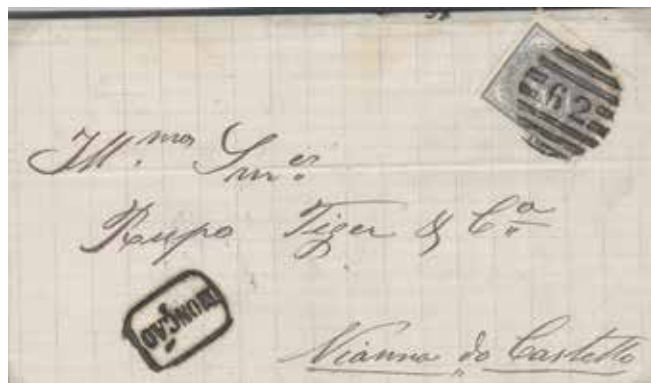 62
Ill.mos Snr.es
Rupo Tiger & C.a
MONÇÃO
Vianna do Castello